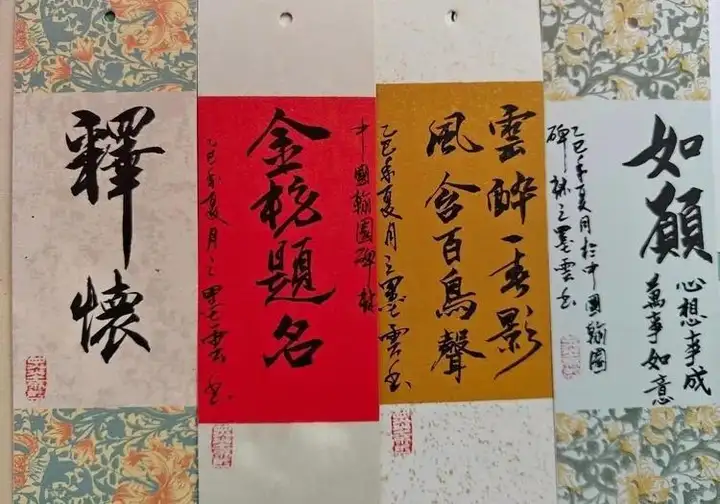 釋懷
中國翰園碑林
金榜題名
乙巳年夏月之墨雲书
雲醉一春影
風含百鳥聲
乙巳年夏月之墨雲书
如願
心想事成
萬事如意
乙巳年夏月於中國翰園
碑林之墨雲书